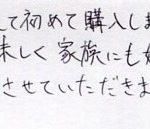 して初めて購入しま
味しく家族にも好
させていただきま